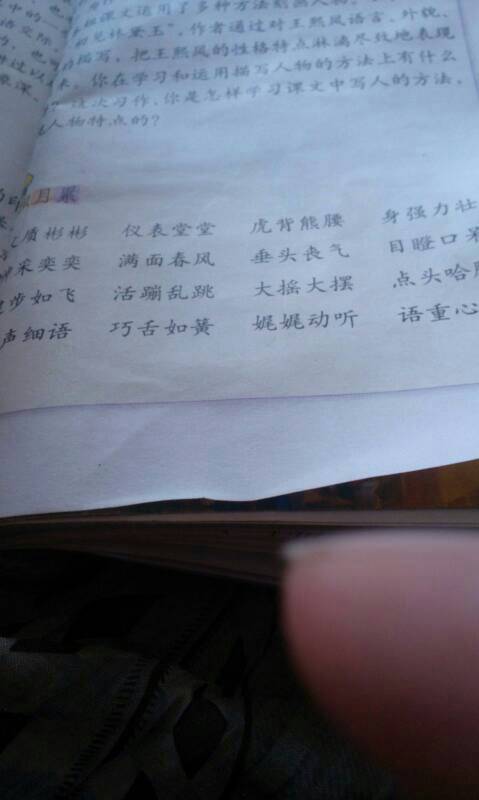 本组课文运用了多种方法刻画人物
初见林黛玉”，作者通过对王熙凤语言、外貌、
的描写，把王熙凤的性格特点淋漓尽致地表现
来。你在学习和运用描写人物的方法上有什么
这次习作，你是怎样学习课文中写人的方法，
人物特点的？
月累
质彬彬 仪表堂堂 虎背熊腰 身强力壮
采奕奕 满面春风 垂头丧气 目瞪口呆
步如飞 活蹦乱跳 大摇大摆 点头哈腰
声细语 巧舌如簧 娓娓动听 语重心